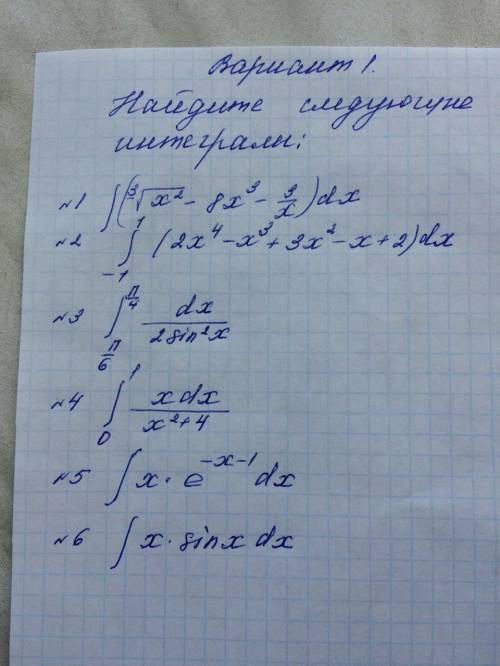 Вариант 1.
Найдите следующие
интегралы:
№1 ∫(∛x² - 8x³ - 3/x)dx
№2 ∫₋₁¹ (2x⁴ - x³ + 3x² - x + 2)dx
№3 ∫_{π/6}^{π/4} dx/(2sin²x)
№4 ∫₀¹ xdx/(x²+4)
№5 ∫x·e^{-x-1}dx
№6 ∫x·sinxdx